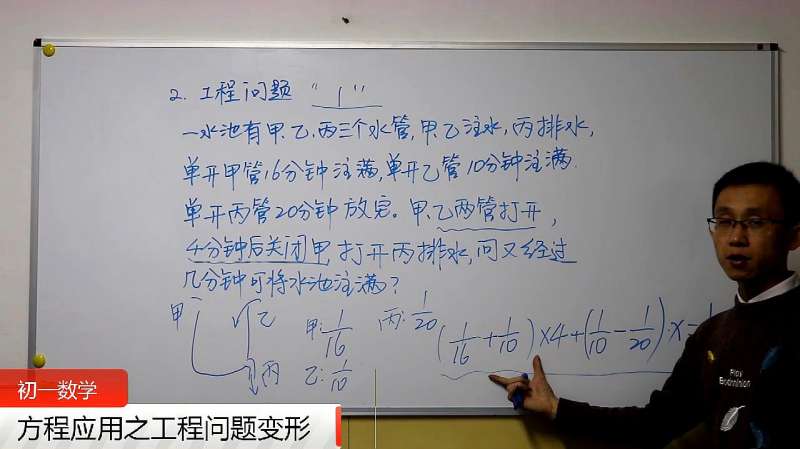 2. 工程问题 "1"
一水池有甲、乙、丙三个水管,甲、乙注水,丙排水,
单开甲管16分钟注满,单开乙管10分钟注满.
单开丙管20分钟放完。甲、乙两管打开,
4分钟后关闭甲,打开丙排水,问又经过
几分钟可将水池注满?
甲 乙 丙
甲: 1/16 丙: 1/20
乙: 1/10
(1/16 + 1/10)×4+(1/10 - 1/20)·x=1
Play
Badminton
初一数学
方程应用之工程问题变形